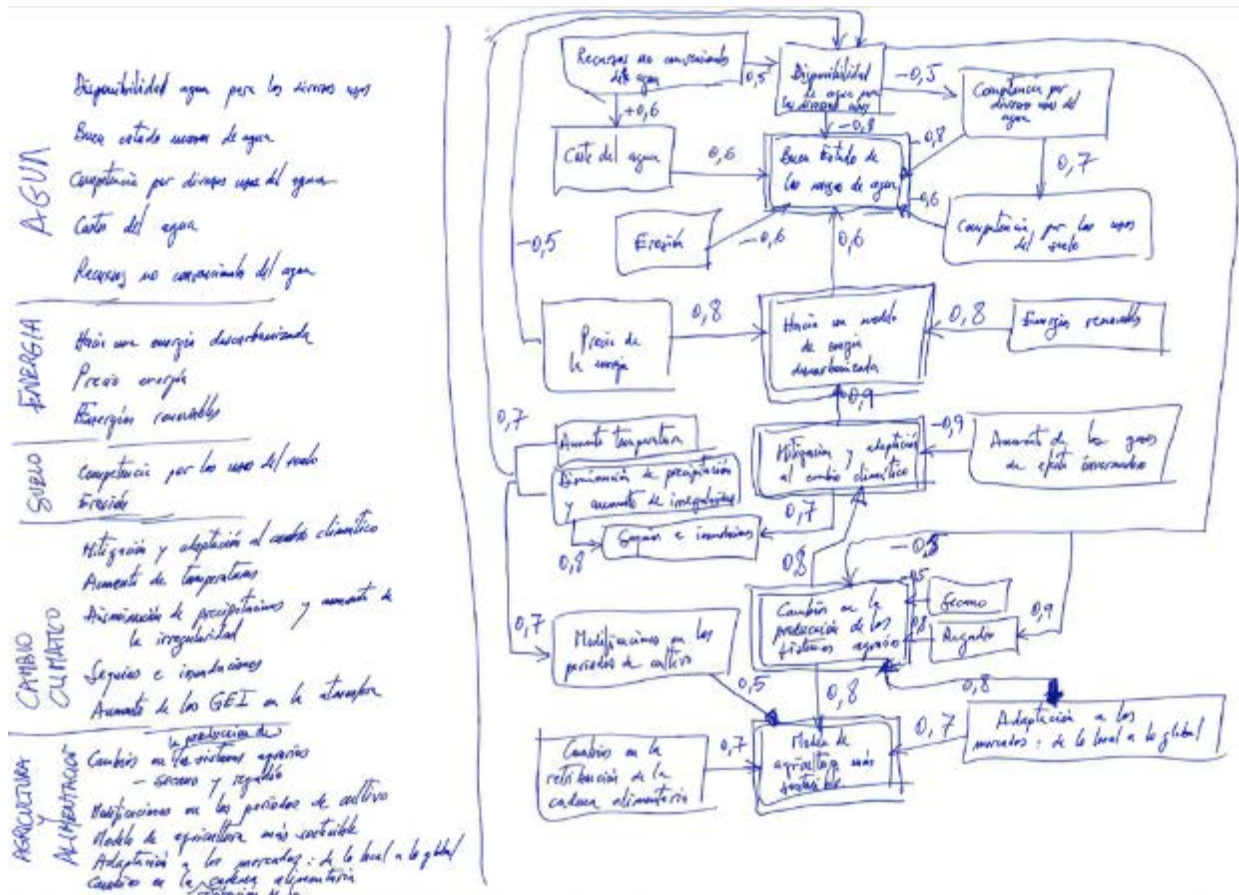 AGUA
Disponibilidad agua para los diversos usos
Buen estado masas de agua
Competencia por diversos usos del agua
Coste del agua
Recursos no convencionales del agua
ENERGIA
Hacia una energía descarbonizada
Precio energía
Energías renovables
SUELO
Competencia por los usos del suelo
Erosión
CAMBIO
CLIMATICO
Mitigación y adaptación al cambio climático
Aumento de temperaturas
Disminución de precipitaciones y aumento de
la irregularidad
Sequías e inundaciones
Aumento de los GEI en la atmosfera
AGRICULTURA
Y
ALIMENTACIÓN
la producción de
Cambios en los sistemas agrarios
- secano y regadío
Modificaciones en los periodos de cultivo
Modelo de agricultura más sostenible
Adaptación a los mercados: de lo local a lo global
Cambios en la cadena alimentaria
Recursos no convencionales
de agua
0,5
Disponibilidad
de agua para
los diversos usos
-0,5
Competencia por
diversos usos del
agua
+0,6
-0,8
-0,8
Coste del agua
0,6
Buen Estado de
las masas de agua
0,7
-0,6
Erosión
-0,6
0,6
Competencia por los usos
del suelo
-0,5
Precio de
la energía
0,8
Hacia un modelo
de energía
descarbonizada
0,8
Energías renovables
0,9
0,7
Aumento temperatura
Disminución de precipitación
y aumento de irregularidad
Mitigación y adaptación
al cambio climático
-0,9
Aumento de los gases
de efecto invernadero
0,7
0,8
Sequías e inundaciones
0,8
0,7
Modificaciones en los
periodos de cultivo
Cambios en la
producción de los
sistemas agrarios
Secano
0,8
Regadío
0,9
0,5
0,8
0,8
Cambios en la
retribución de la
cadena alimentaria
0,7
Modelo de
agricultura más
sostenible
0,7
Adaptación a los
mercados: de lo local a lo global